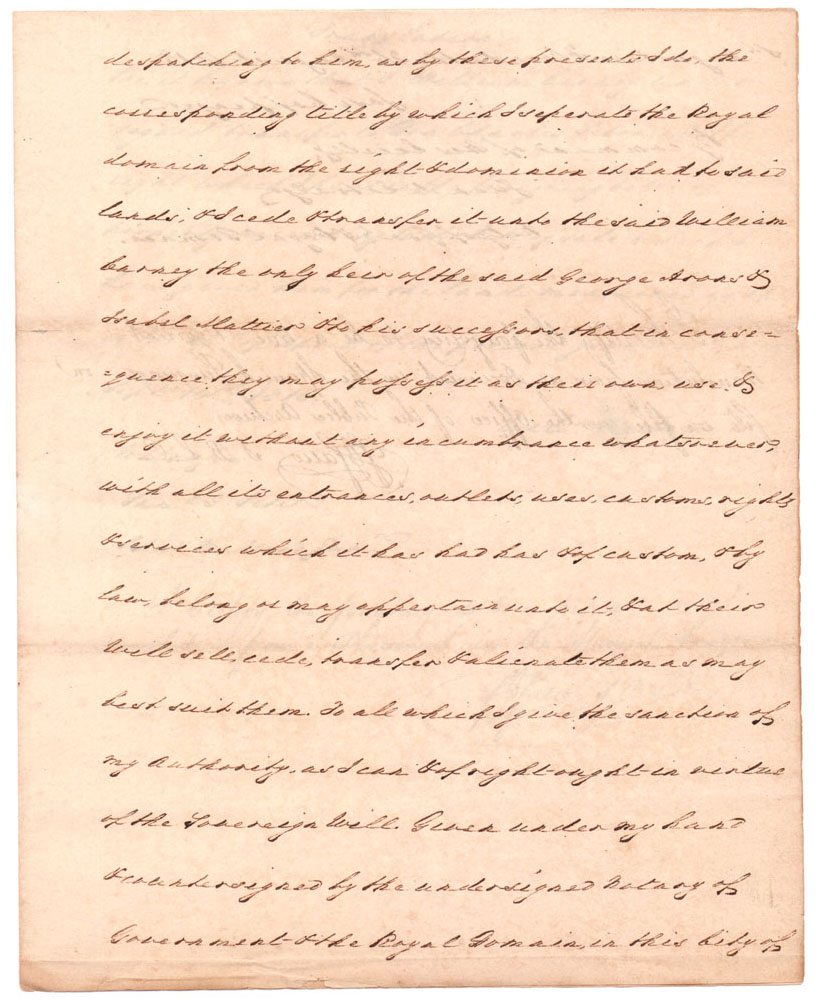 despatching to him, as by these presents I do, the
corresponding title by which I seperate the Royal
domain from the right & dominion it had to said
lands; & I cede & transfer it unto the said William
barney the only heir of the said George Arons &
Isabel Mattier & to his successors, that in conse=
=quence they may possess it as their own use &
enjoy it without any incumbrance whatsoever,
with all its entrances, outlets, uses, customs, rights
& services which it has had has & of custom, & by
law, belong or may appertain unto it, & at their
Will sell, cede, transfer & alienate them as may
best suit them. To all which I give the sanction of
my Authority, as I can & of right ought in virtue
of the Sovereign Will. Given under my hand
& countersigned by the undersigned Notary of
Government & the Royal Domain, in this City of